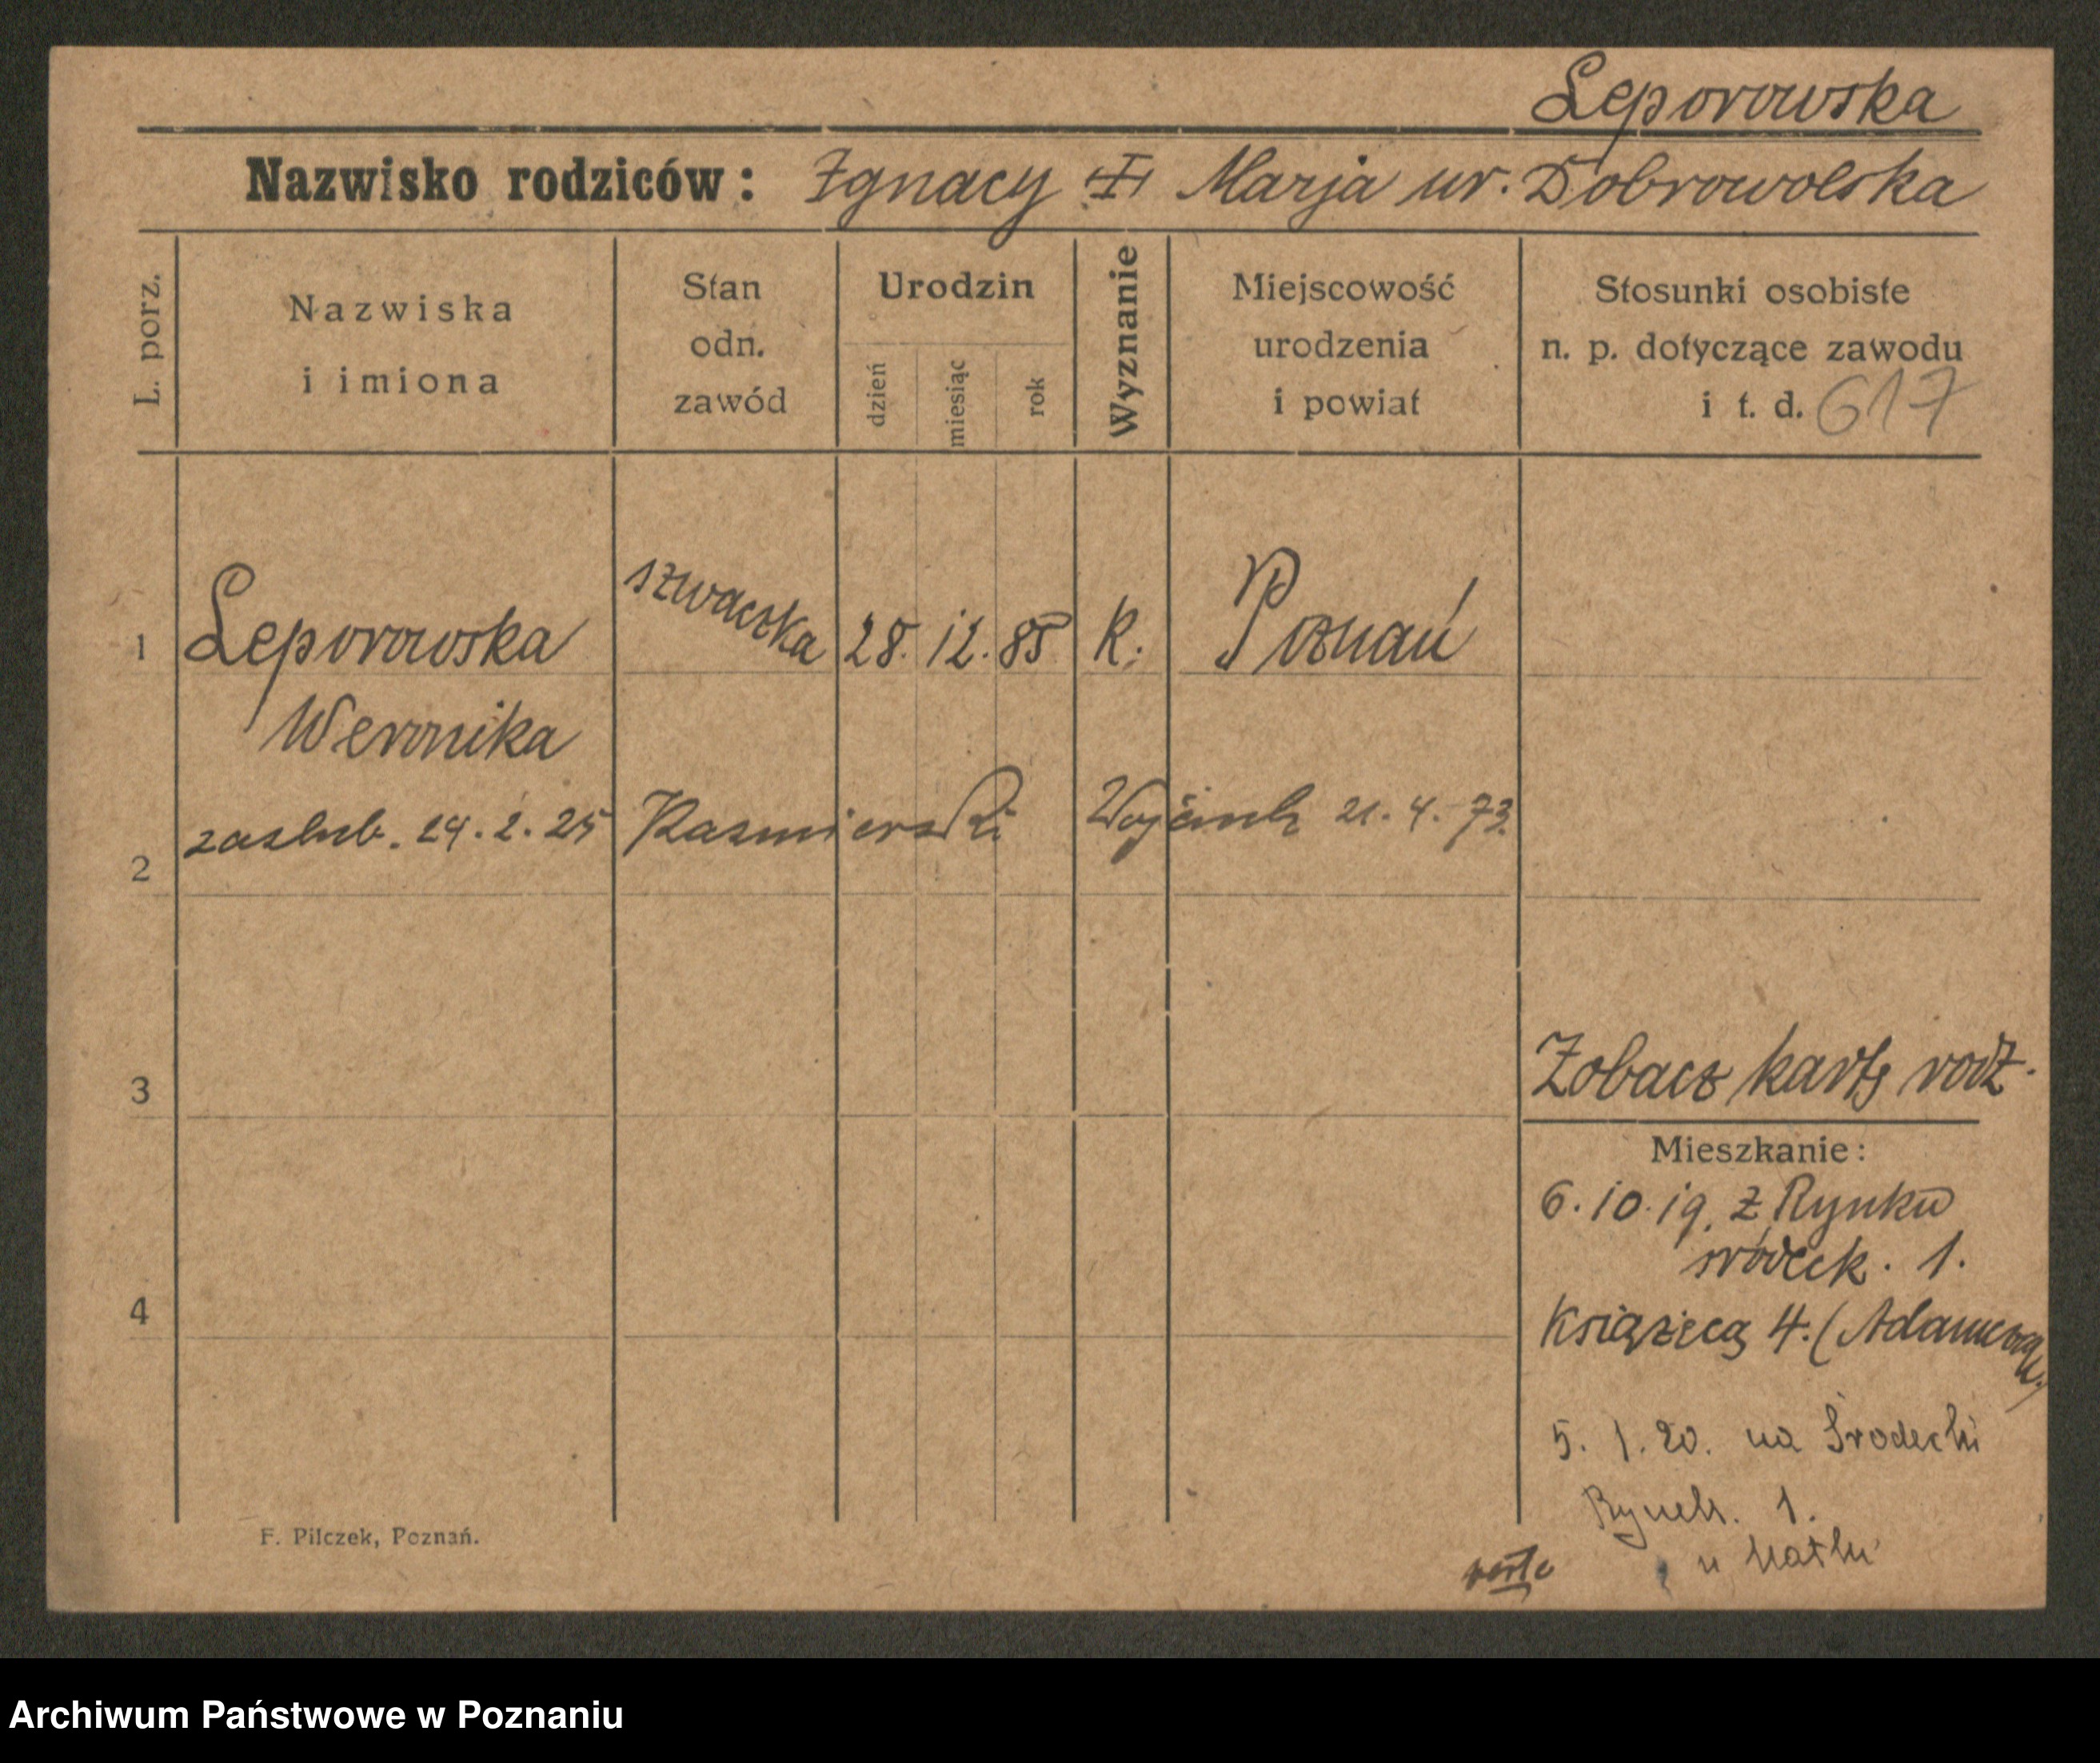 Leporowska
Nazwisko rodziców: Ignacy Marja ur. Dobrowolska
L. porz.
Nazwiska
i imiona
Stan
odn.
zawód
Urodzin
dzień
miesiąc
rok
Wyznanie
Miejscowość
urodzenia
i powiat
Stosunki osobiste
n. p. dotyczące zawodu
i t. d. 617
1 Leporowska szwaczka 28. 12. 85 K. Poznań
Weronika
2 zaslub. 24. 2. 25 Kasmierski 21. 4. 73.
3
Zobacz kartę rodz.
Mieszkanie:
6. 10. 19. z Rynku
śródeck. 1.
4
Książęcą 4.
5. 1. 20. na Środecki
Rynek. 1.
u
verte
F. Pilczek, Poznań.
Archiwum Państwowe w Poznaniu